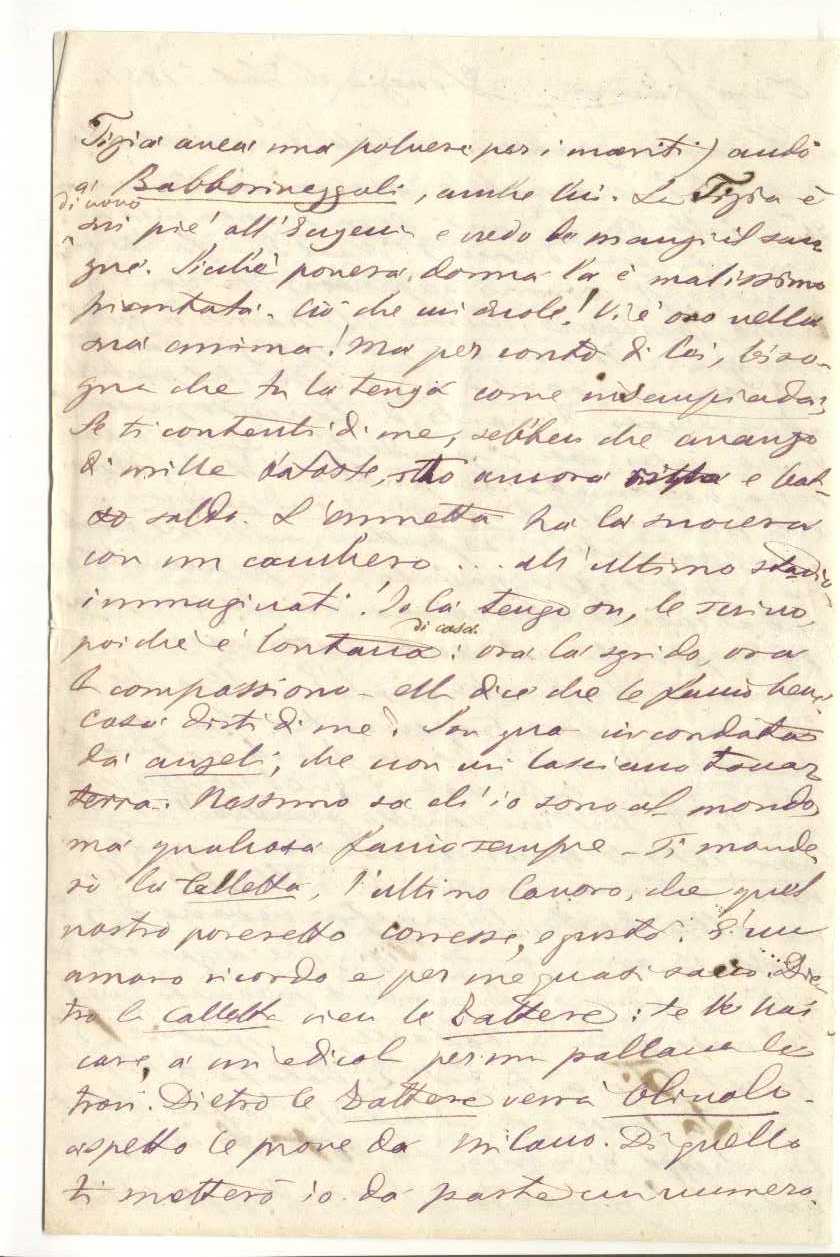 Tizia avea una polvere per i mariti) andò
a Babborineggoli, anche lui. La Tizia è
di nuovo
sui piè all'Eugenia e credo le mangi il san-
gue. Sicchè povera donna la è malissimo
piantata. Ciò che mi duole! Vi è oro nella
sua anima! Ma per conto di lei, biso-
gna che tu la tenga come
Se ti contenti di me, sebben che avanzo
di mille batoste, sto ancora e bat-
to saldo. L'Emmetta ha la suocera
con un canchero ... all'ultimo stadio
immaginati! Io la tengo su, le scrivo,
di casa
poichè è lontana: ora la sgrido, ora
la compassiono - ella dice che le faccio bene.
Cosa dirti di me? Son qua circondata
da angeli, che non mi lasciano toccar
terra. Nessuno sa ch'io sono al mondo,
ma qualcosa faccio sempre - Ti mande-
rò la Calletta, l'ultimo lavoro, che quel
nostro poveretto corresse, e gustò. È un
amaro ricordo e per me quasi sacro. Die-
tro la Calletta vien le Zattere: te le hai
care, a un'edicola per una pallanca le
trovi. Dietro le Zattere verrà Olivolo.
aspetto le prove da Milano. Di quello
ti metterò io da parte un numero.